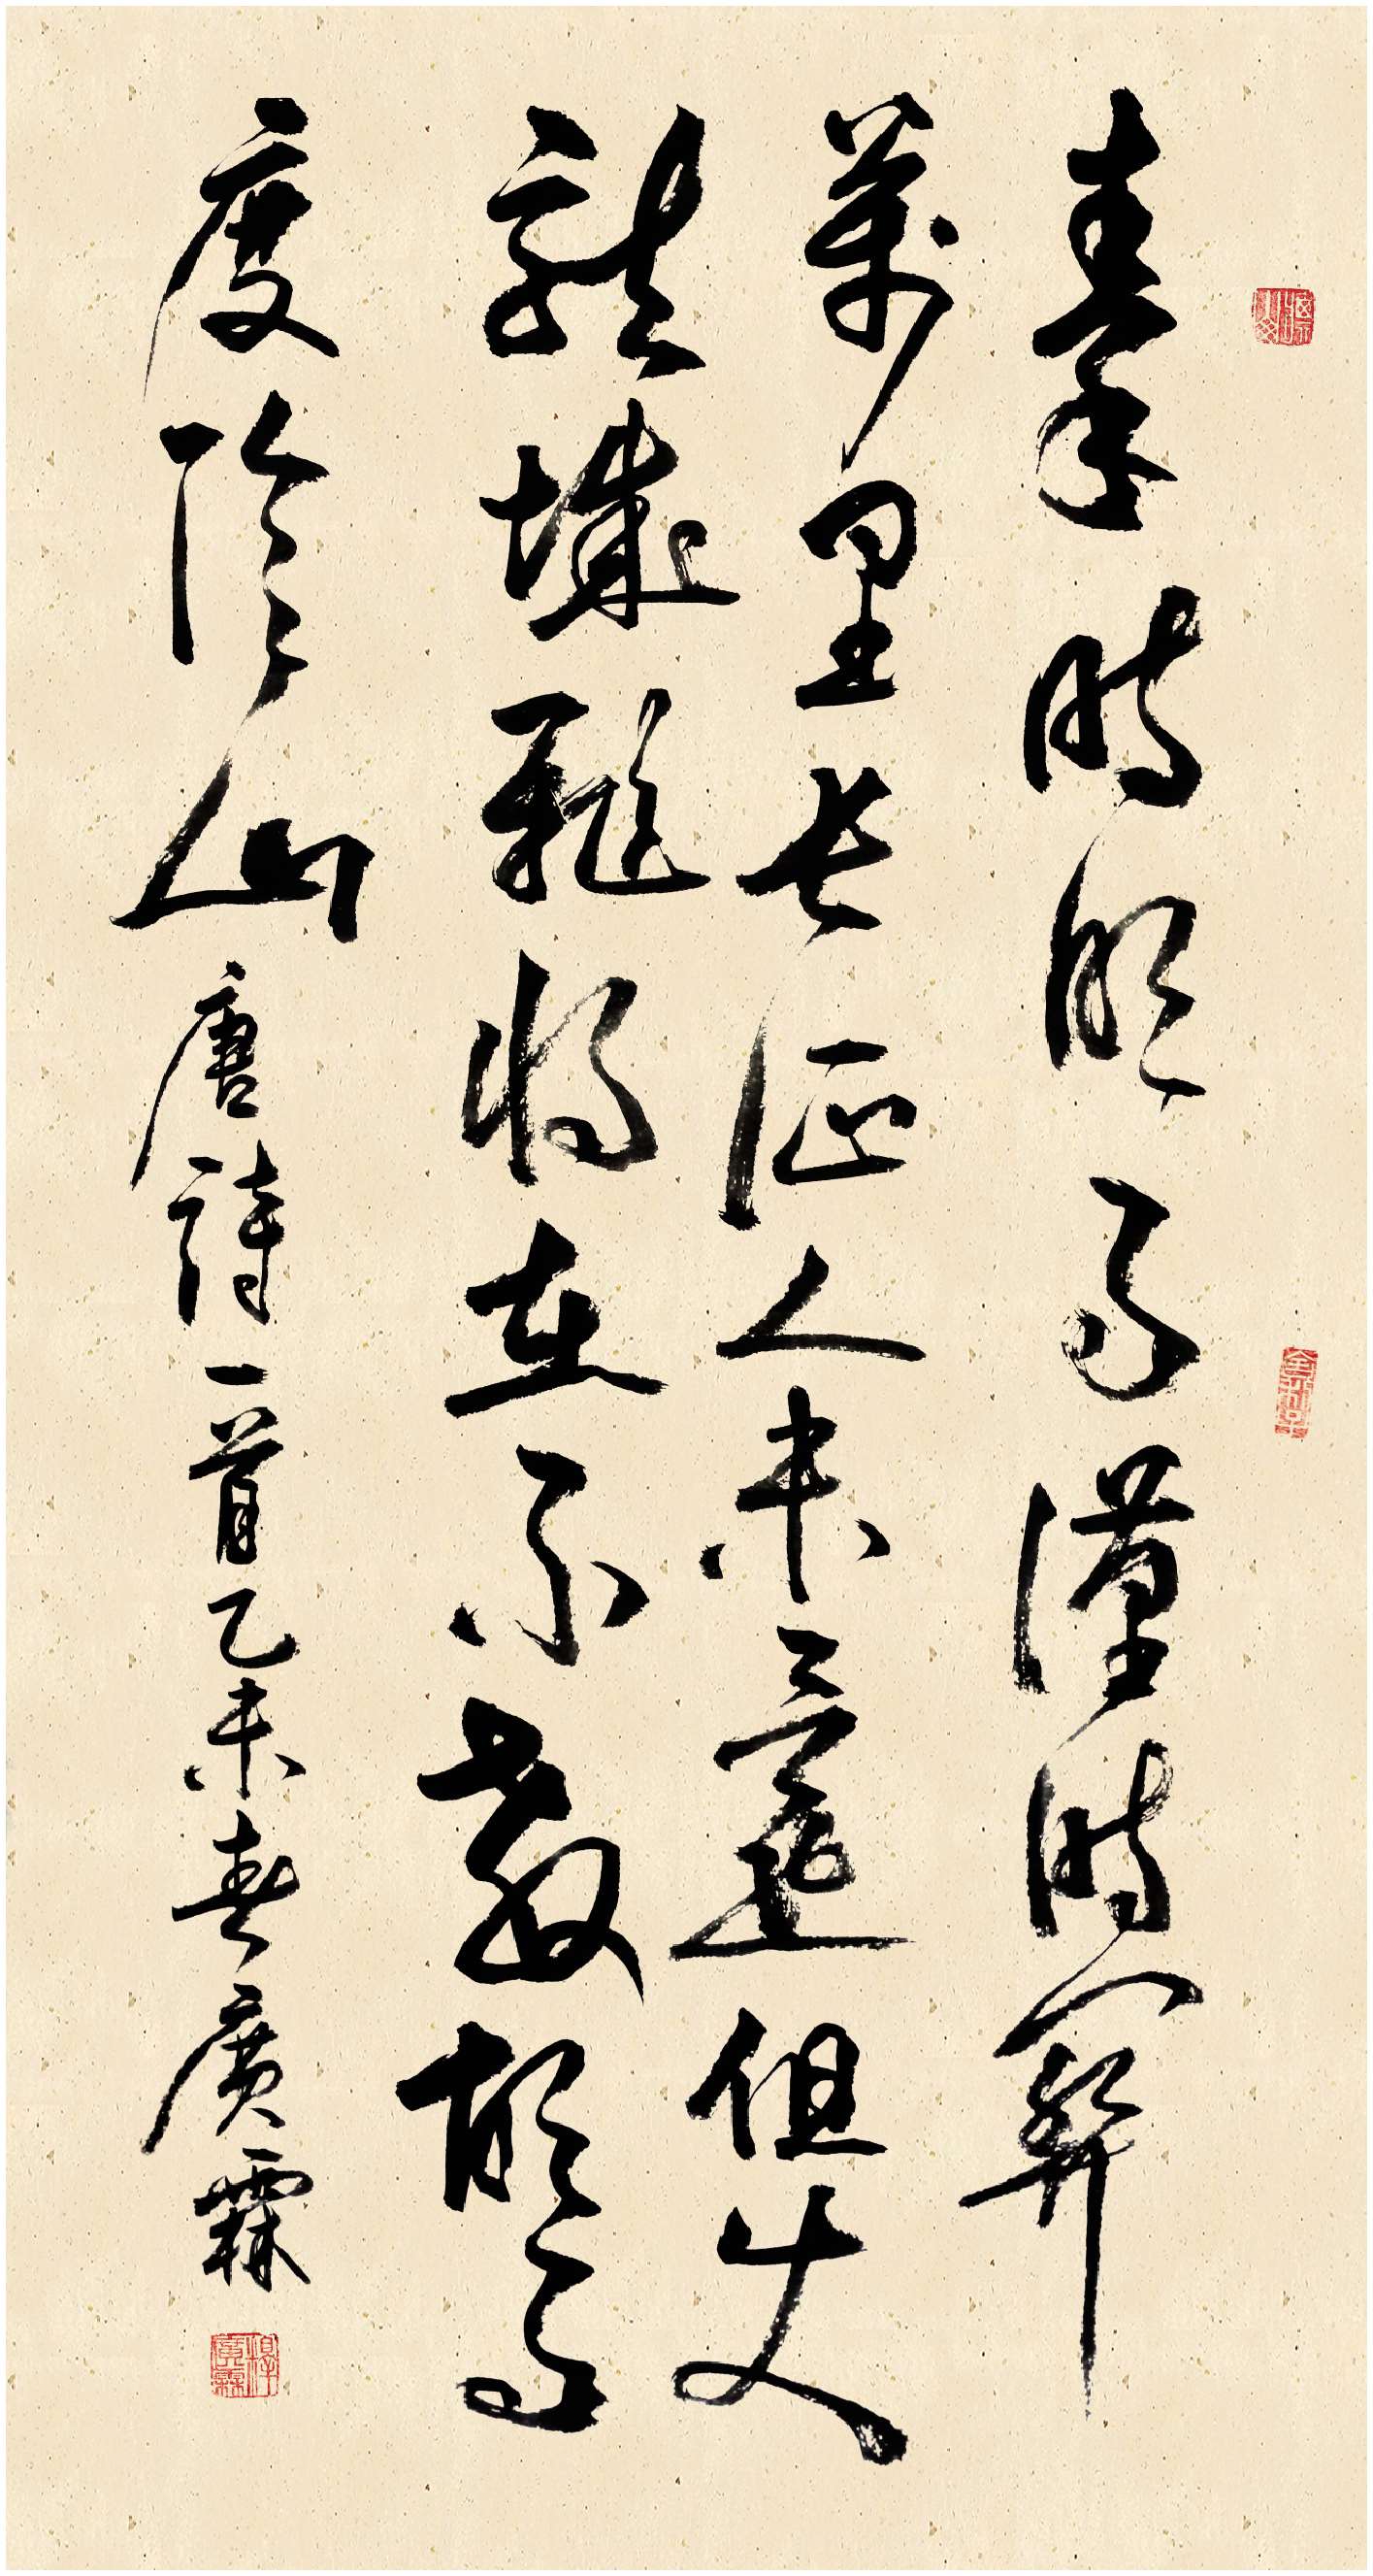 秦時明月漢時關
萬里長征人未還但使
龍城飛將在不教胡馬
度陰山唐詩一首乙未春廣霖